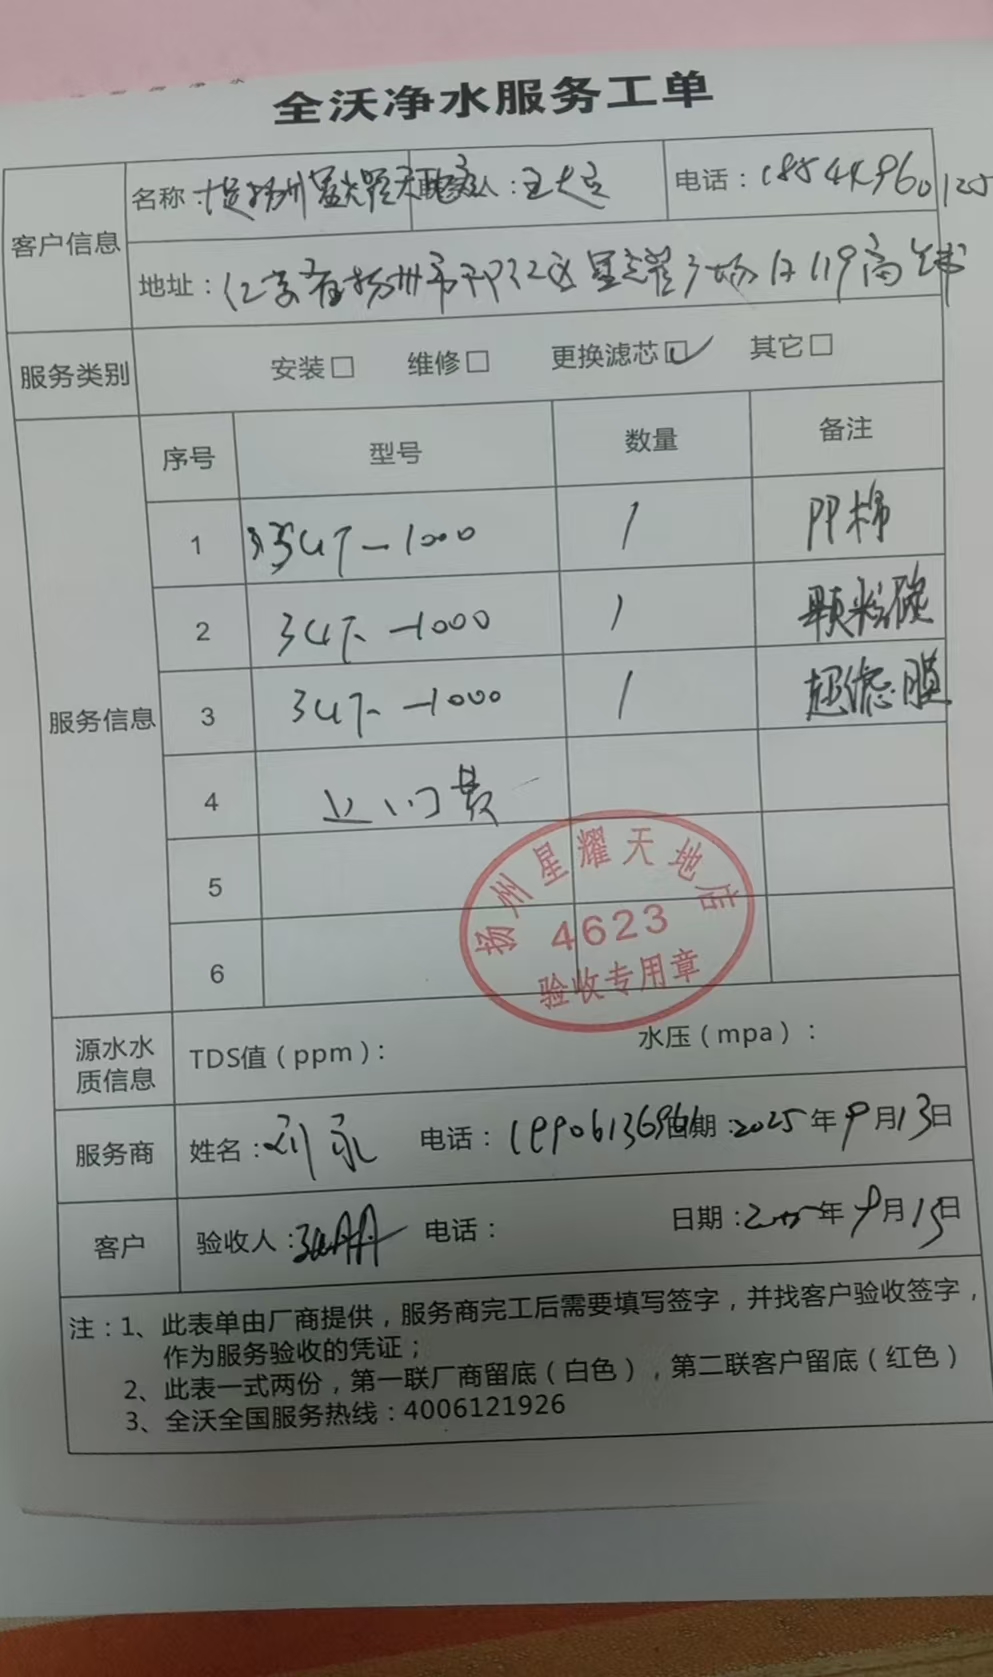 全沃净水服务工单
客户信息
名称： 联系人： 电话：
地址：江苏省扬州市邗江区星耀广场
服务类别 安装□ 维修□ 更换滤芯☑ 其它□
服务信息
序号 型号 数量 备注
1 -1000 1 PP棉
2 -1000 1 颗粒碳
3 -1000 1 超滤膜
4 上门费
5
6
扬州星耀天地店
4623
验收专用章
源水水质信息 TDS值（ppm）： 水压（mpa）：
服务商 姓名： 电话： 日期：2025年9月13日
客户 验收人： 电话： 日期：2025年9月13日
注：1、此表单由厂商提供，服务商完工后需要填写签字，并找客户验收签字，
作为服务验收的凭证；
2、此表一式两份，第一联厂商留底（白色），第二联客户留底（红色）
3、全沃全国服务热线：4006121926